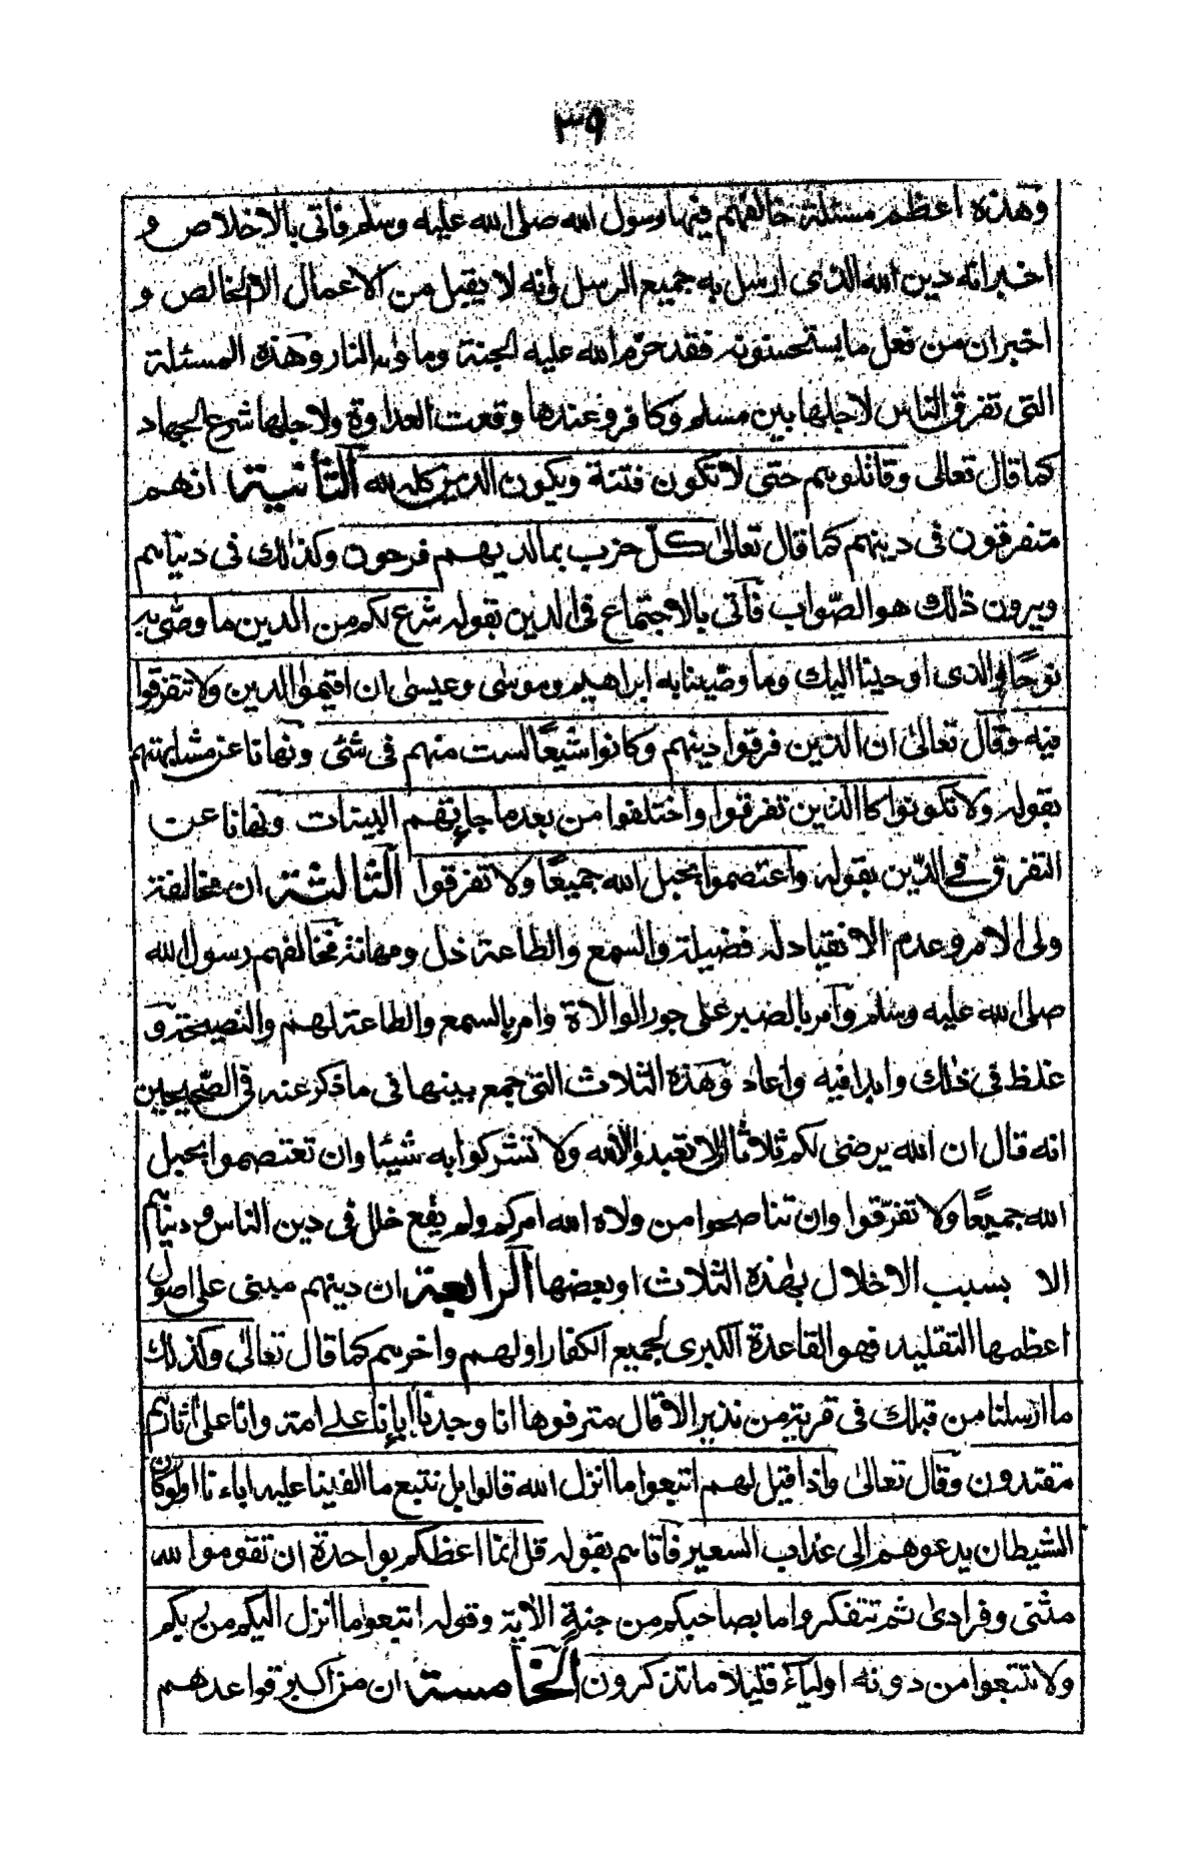 ٣٩
وهذه اعظم مسئلة خالفهم فيها رسول الله صلى الله عليه وسلم فأتى بالاخلاص و
اخبر انه دين الله الذى ارسل به جميع الرسل وانه لا يقبل من الاعمال الا الخالص و
اخبر ان من فعل ما يستحسنونه فقد حرّم الله عليه الجنة وماواه النار وهذه المسئلة
التى تفرق الناس لاجلها بين مسلم وكافر وعندها وقعت العداوة ولاجلها شرع الجهاد
كما قال تعالى وقاتلوهم حتى لا تكون فتنة ويكون الدين كله لله الثانية انهم
متفرقون فى دينهم كما قال تعالى كلّ حزب بما لديهم فرحون وكذلك فى دنياهم
ويرون ذلك هو الصّواب فأتى بالاجتماع فى الدين بقوله شرع لكم من الدين ما وصّى به
نوحًا والذى اوحينا اليك وما وصّينا به ابراهيم وموسى وعيسى ان اقيموا الدين ولا تتفرقوا
فيه وقال تعالى ان الذين فرقوا دينهم وكانوا شيعًا لست منهم فى شئ ونهانا عن مشابهتهم
بقوله ولا تكونوا كالذين تفرقوا واختلفوا من بعد ما جاءتهم البينات ونهانا عن
التفرق في الدّين بقوله واعتصموا بحبل الله جميعًا ولا تفرقوا الثالثة ان مخالفة
ولى الامر وعدم الانقياد له فضيلة والسمع والطاعة ذل ومهانة فخالفهم رسول الله
صلى الله عليه وسلم وآمر بالصبر على جور الولاة وامر بالسمع والطاعة لهم والنصيحة و
غلظ فى ذلك وابدا فيه واعاد وهذه الثلاث التى جمع بينها فى ما ذكر عنه فى الصّحيحين
انه قال ان الله يرضى لكم ثلاثا الا تعبدوا الا الله ولا تشركوا به شيئا وان تعتصموا بحبل
الله جميعًا ولا تفرّقوا وان تناصحوا من ولاه الله امركم ولم يقع خلل فى دين الناس و دنياهم
الا بسبب الاخلال بهذه الثلاث او بعضها الرابعة ان دينهم مبنى على اصول
اعظمها التقليد فهو القاعدة الكبرى لجميع الكفار اولهم واخرهم كما قال تعالى وكذلك
ما ارسلنا من قبلك فى قرية من نذير الا قال مترفوها انا وجدنا آباءنا على امة وانا على آثارهم
مقتدون وقال تعالى واذا قيل لهم اتبعوا ما انزل الله قالوا بل نتبع ما الفينا عليه اباءنا اولوكان
الشيطان يدعوهم الى عذاب السعير فأتاهم بقوله قل انما اعظكم بواحدة ان تقوموا لله
مثنى وفرادى ثم تتفكروا ما بصاحبكم من جنة الآية وقوله اتبعوا ما انزل اليكم من ربكم
ولا تتبعوا من دونه اولياء قليلا ما تذكرون الخامسة ان من اكبر قواعدهم